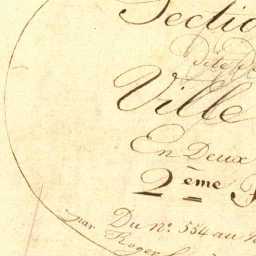 Sectio
Dite d
Ville
En Deux
2.ème F
Du n.º 554 au N
par Roger